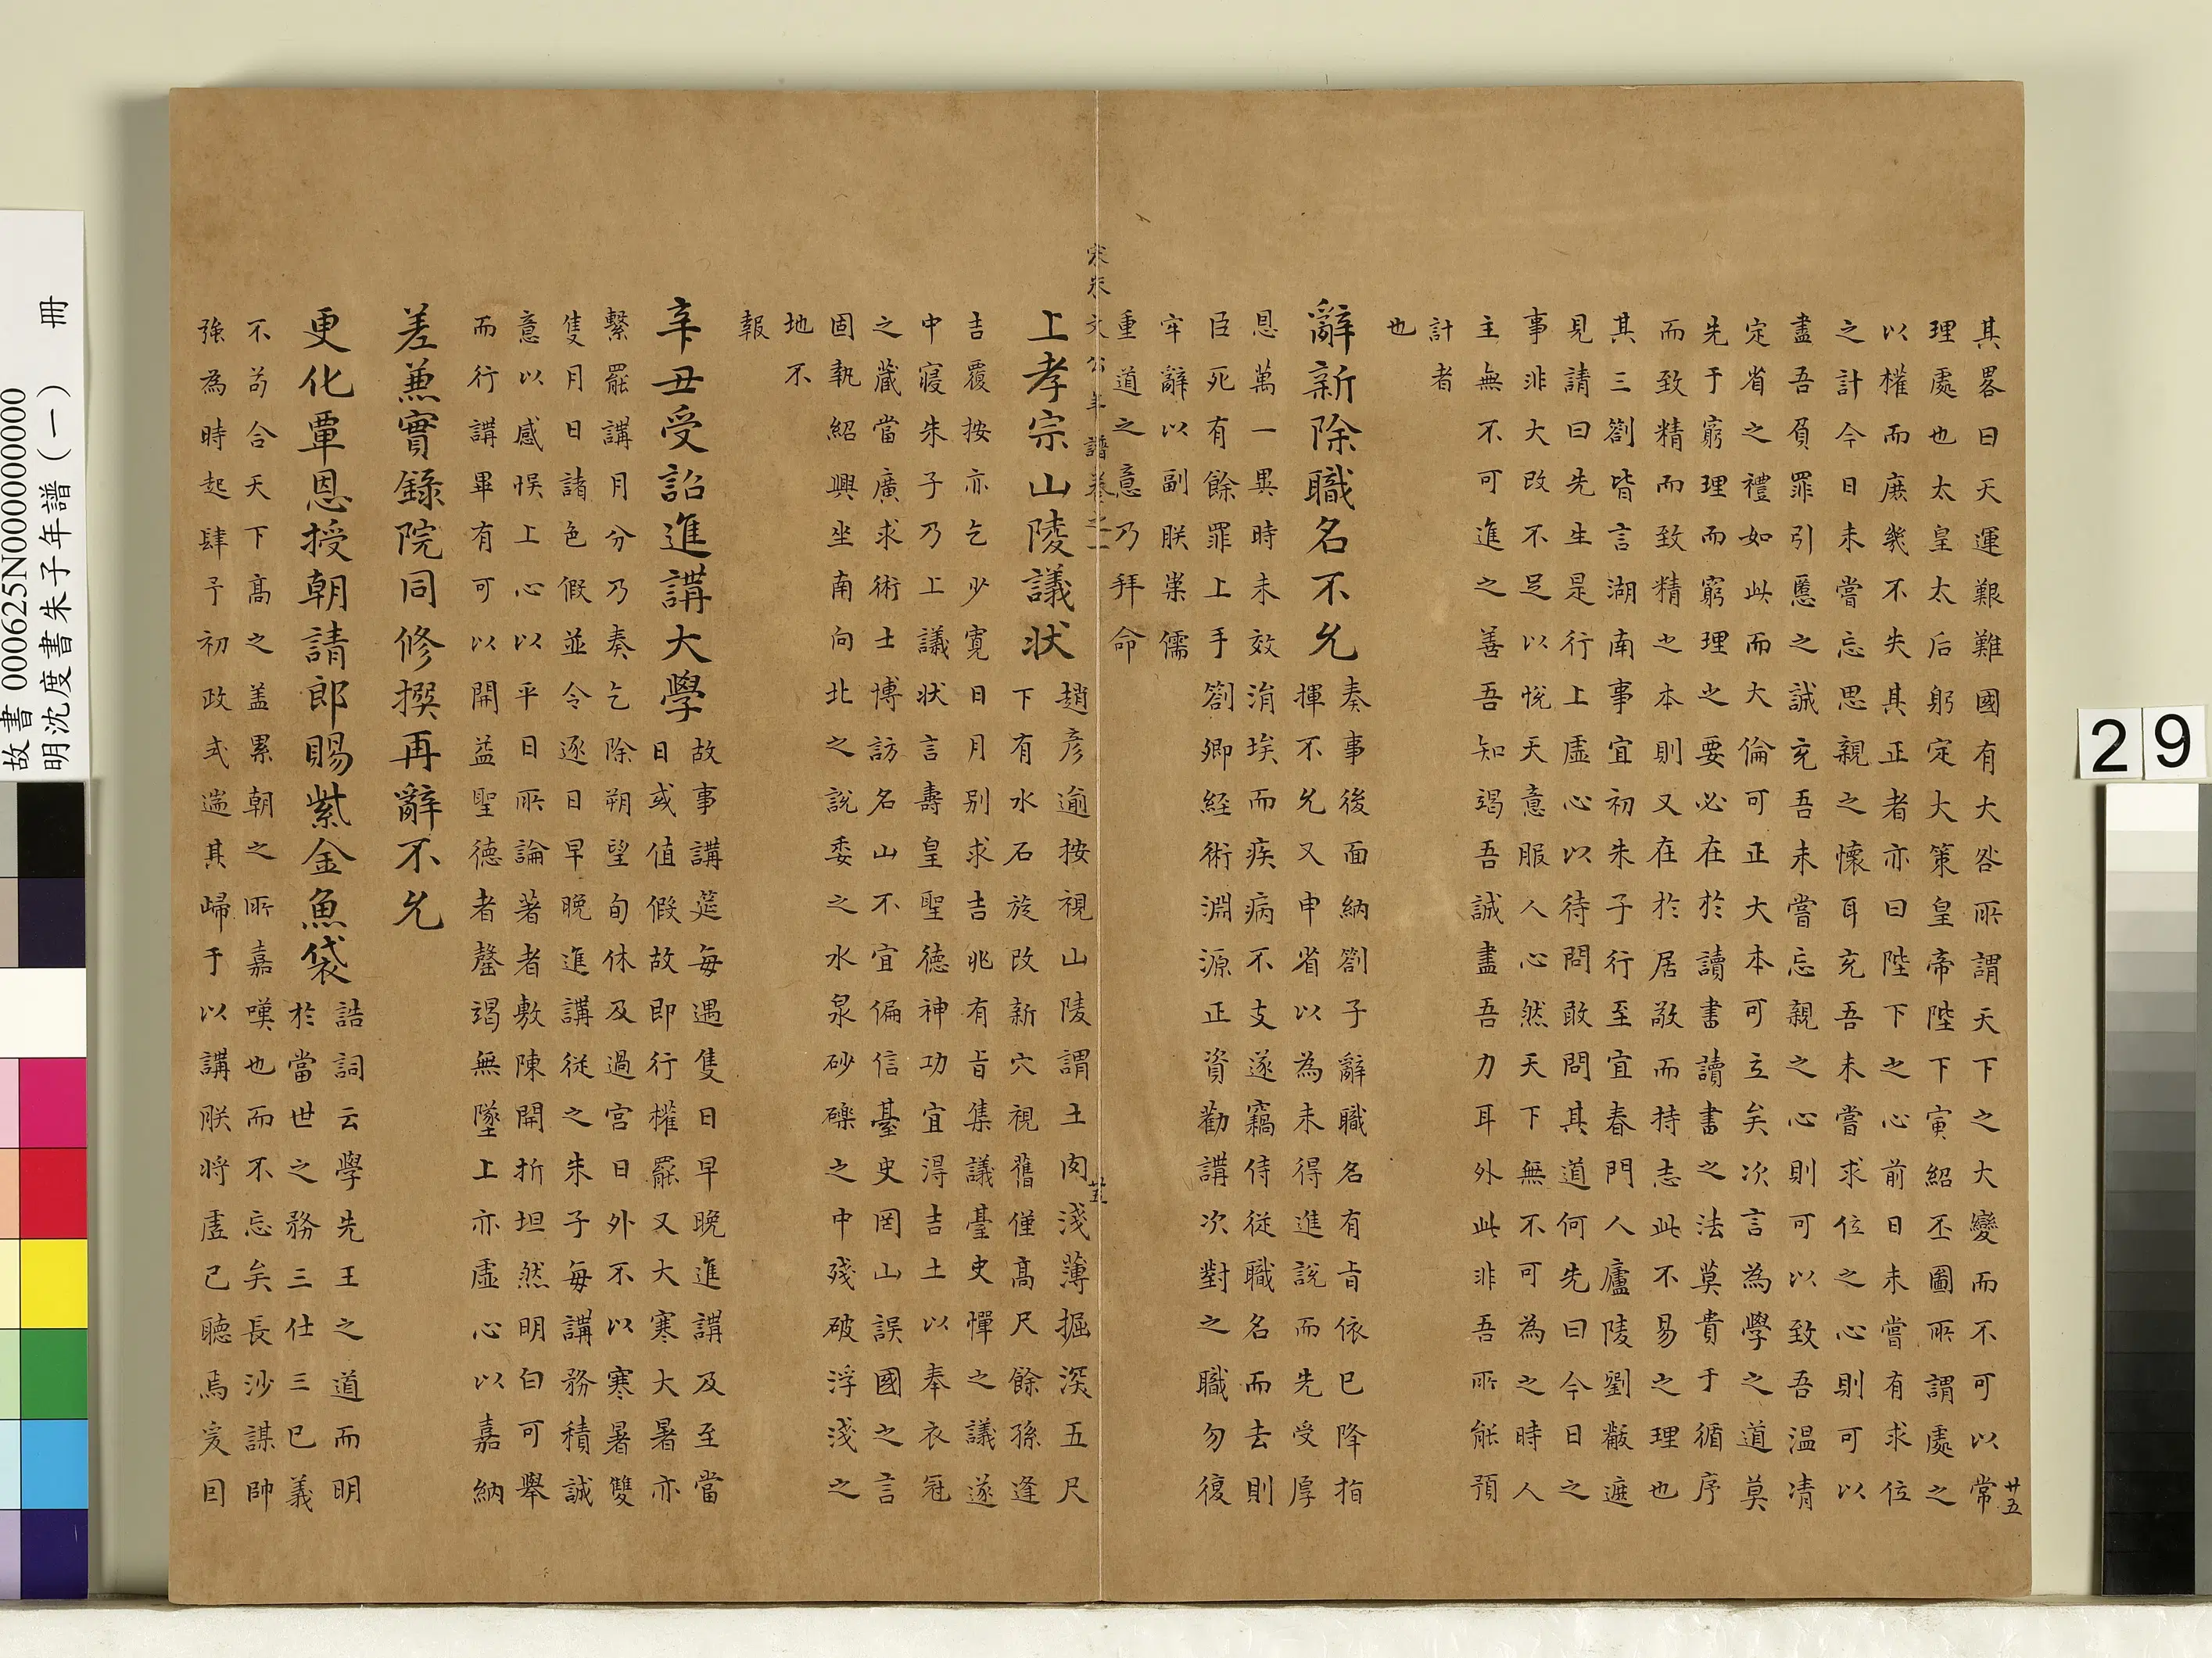 其畧曰天運艱難國有大咎所謂天下之大變而不可以常
理處也太皇太后躬定大策皇帝陛下寅紹丕圖所謂處之
以權而庶幾不失其正者亦曰陛下之心前日未嘗有求位
之計今日未嘗忘思親之懷耳充吾未嘗求位之心則可以
盡吾負罪引慝之誠充吾未嘗忘親之心則可以致吾温凊
定省之禮如此而大倫可正大本可立矣次言為學之道莫
先于窮理而窮理之要必在於讀書讀書之法莫貴于循序
而致精而致精之本則又在於居敬而持志此不易之理也
其三劄皆言湖南事宜初朱子行至宜春門人廬陵劉黻遮
見請曰先生是行上虛心以待問敢問其道何先曰今日之
事非大改不足以悅天意服人心然天下無不可為之時人
主無不可進之善吾知竭吾誠盡吾力耳外此非吾所能預
計者
也
辭新除職名不允
奏事後面納劄子辭職名有旨依已降指
揮不允又申省以為未得進說而先受厚
恩萬一異時未效涓埃而疾病不支遂竊侍從職名而去則
臣死有餘罪上手劄卿経術淵源正資勸講次對之職勿復
牢辭以副朕崇儒
重道之意乃拜命
宋朱文公年譜卷之二
廿五
上孝宗山陵議状
趙彦逾按視山陵謂土肉淺薄掘深五尺
下有水石旋改新穴視舊僅高尺餘孫逢
吉覆按亦乞少寛日月别求吉兆有旨集議臺史憚之議遂
中寢朱子乃上議状言壽皇聖德神功宜得吉土以奉衣冠
之藏當廣求術士博訪名山不宜偏信臺史罔山誤國之言
固執紹興坐南向北之說委之水泉砂礫之中殘破浮淺之
地不
報
辛丑受詔進講大學
故事講筵每遇隻日早晚進講及至當
日或值假故即行權罷又大寒大暑亦
繫罷講月分乃奏乞除朔望旬休及過宫日外不以寒暑雙
隻月日諸色假並令逐日早晚進講從之朱子每講務積誠
意以感悞上心以平日所論著者敷陳開折坦然明白可舉
而行講畢有可以開益聖德者罄竭無墜上亦虛心以嘉納
差兼實錄院同修撰再辭不允
更化覃恩授朝請郎賜紫金魚袋
誥詞云學先王之道而明
於當世之務三仕三已義
不苟合天下高之盖累朝之所嘉嘆也而不忘矣長沙謀帥
強為時起肆予初政式遄其歸于以講朕将虛己聽焉爰囙
廿五
29
故書 000625N000000000
明沈度書朱子年譜(一) 冊